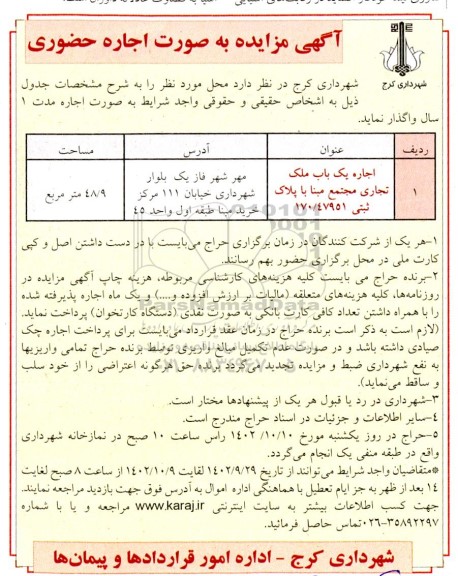 آگهی مزایده به صورت اجاره حضوری
شهرداری کرج
شهرداری کرج در نظر دارد محل مورد نظر را به شرح مشخصات جدول
ذیل به اشخاص حقیقی و حقوقی واجد شرایط به صورت اجاره مدت ۱
سال واگذار نماید.
ردیف عنوان آدرس مساحت
۱ اجاره یک باب ملک تجاری مجتمع مبنا با پلاک ثبتی ۱۷۰/۴۷۹۵۱ مهر شهر فاز یک بلوار شهرداری خیابان ۱۱۱ مرکز خرید مبنا طبقه اول واحد ۴۵ ۴۸/۹ متر مربع
۱-هر یک از شرکت کنندگان در زمان برگزاری حراج می‌بایست با در دست داشتن اصل و کپی
کارت ملی در محل برگزاری حضور بهم رسانند.
۲-برنده حراج می بایست کلیه هزینه‌های کارشناسی مربوطه، هزینه چاپ آگهی مزایده در
روزنامه‌ها، کلیه هزینه‌های متعلقه (مالیات بر ارزش افزوده و....) و یک ماه اجاره پذیرفته شده
را با همراه داشتن تعداد کافی کارت بانکی به صورت نقدی (دستگاه کارتخوان) پرداخت نماید.
(لازم است به ذکر است برنده حراج در زمان عقد قرارداد می‌بایست برای پرداخت اجاره چک
صیادی داشته باشد و در صورت عدم تکمیل مبالغ واریزی توسط برنده حراج تمامی واریزیها
به نفع شهرداری ضبط و مزایده تجدید می‌گردد برنده حق هرگونه اعتراضی را از خود سلب
و ساقط می‌نماید).
۳-شهرداری در رد یا قبول هر یک از پیشنهادها مختار است.
۴-سایر اطلاعات و جزئیات در اسناد حراج مندرج است.
۵-حراج در روز یکشنبه مورخ ۱۴۰۲/۱۰/۱۰ راس ساعت ۱۰ صبح در نمازخانه شهرداری
واقع در طبقه منفی یک انجام می‌گردد.
*متقاضیان واجد شرایط می‌توانند از تاریخ ۱۴۰۲/۹/۲۹ لغایت ۱۴۰۲/۱۰/۹ از ساعت ۸ صبح لغایت
۱۴ بعد از ظهر به جز ایام تعطیل با هماهنگی اداره اموال به آدرس فوق جهت بازدید مراجعه نمایند.
جهت کسب اطلاعات بیشتر به سایت اینترنتی www.karaj.ir مراجعه و یا با شماره
۰۲۶-۳۵۸۹۲۲۹۷ تماس حاصل فرمائید.
شهرداری کرج - اداره امور قراردادها و پیمان‌ها